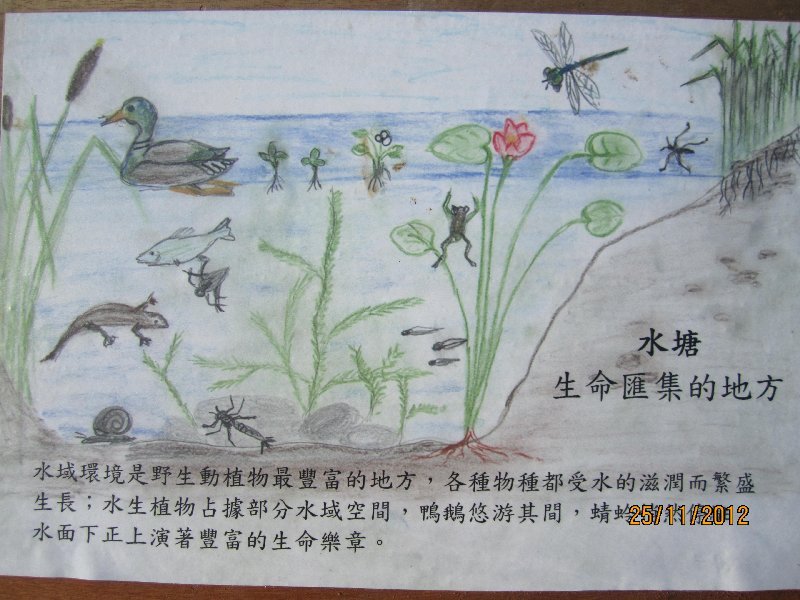 水塘
生命匯集的地方
水域環境是野生動植物最豐富的地方，各種物種都受水的滋潤而繁盛
生長；水生植物占據部分水域空間，鴨鵝悠游其間，蜻蜓
25/11/2012
水面下正上演著豐富的生命樂章。